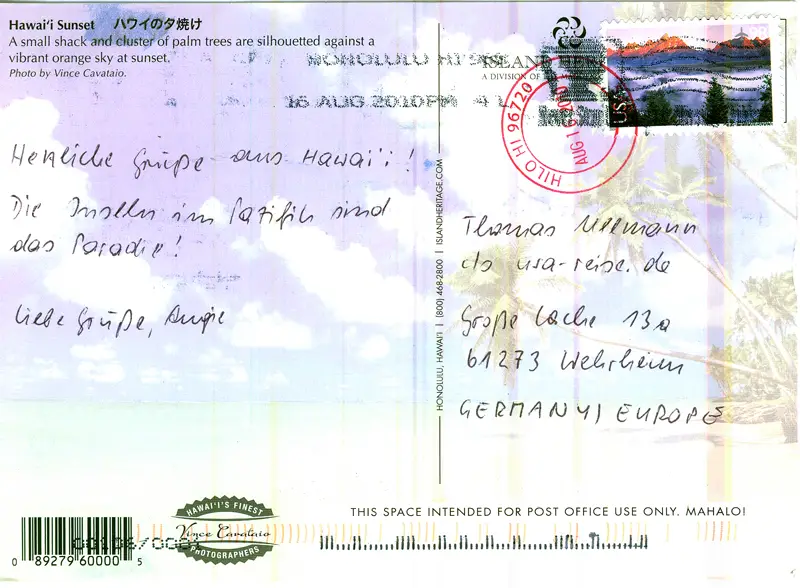 Hawai‘i Sunset ハワイの夕焼け
A small shack and cluster of palm trees are silhouetted against a
vibrant orange sky at sunset.
Photo by Vince Cavataio.
HONOLULU HI
16 AUG 2010 PM 4 L
Herzliche Grüße aus Hawai'i!
Die Inseln im Pazifik sind
das Paradies!
Liebe Grüße, Angie
HONOLULU, HAWAI‘I | (800) 468-2800 | ISLANDHERITAGE.COM
ISLAND
A DIVISION OF
HILO HI 96720
AUG 16 2010
USA
Thomas
c/o usa-reise.de
Große Lache 13a
61273 Wehrheim
GERMANY / EUROPE
THIS SPACE INTENDED FOR POST OFFICE USE ONLY. MAHALO!
HAWAI‘I'S FINEST
Vince Cavataio
PHOTOGRAPHERS
0 89279 60000 5